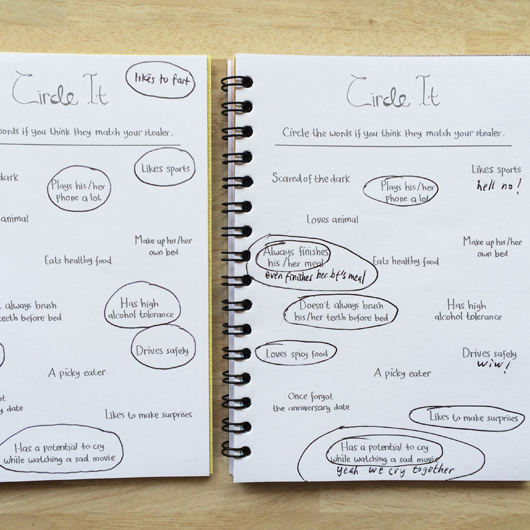 Circle It
likes to fart
words if you think they match your stealer.
dark
Plays his/her
phone a lot
Likes sports
animal
Make up his/her
own bed
Eats healthy food
always brush
teeth before bed
Has high
alcohol tolerance
Drives safely
A picky eater
date
Likes to make surprises
Has a potential to cry
while watching a sad movie
Circle It
Circle the words if you think they match your stealer.
Scared of the dark
Plays his/her
phone a lot
Likes sports
hell no!
Loves animal
Always finishes
his/her meal
even finishes her bf's meal
Eats healthy food
Make up his/her
own bed
Doesn't always brush
his/her teeth before bed
Has high
alcohol tolerance
Loves spicy food
Drives safely
wiw!
A picky eater
Once forgot
the anniversary date
Likes to make surprises
Has a potential to cry
while watching a sad movie
yeah we cry together